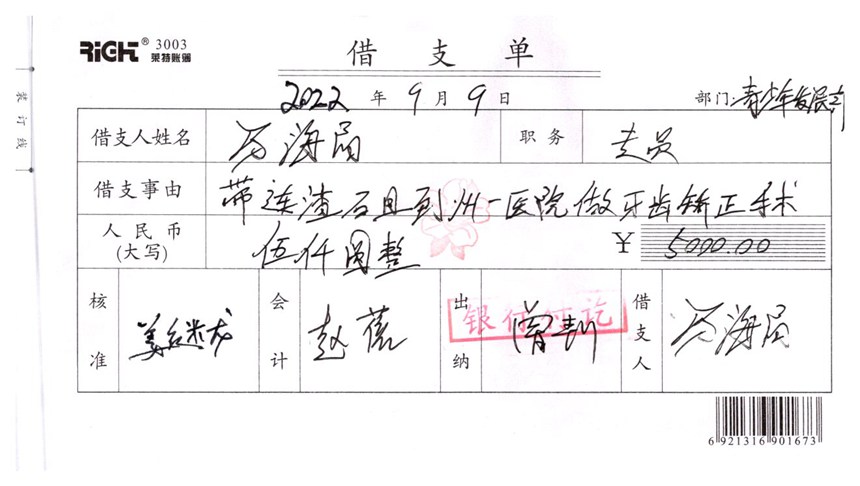 RiGHT® 3003
莱特账簿
借 支 单
2022 年 9 月 9 日
部门:青少年发展部
装 订 线
借支人姓名 海局 职 务 专员
借支事由 带连渣石且到州一医院做牙齿矫正手术
人民币(大写) 伍仟圆整 ¥ 5000.00
核准 会计 赵 出纳 借支人 海局
银行付讫
6 921316 901673